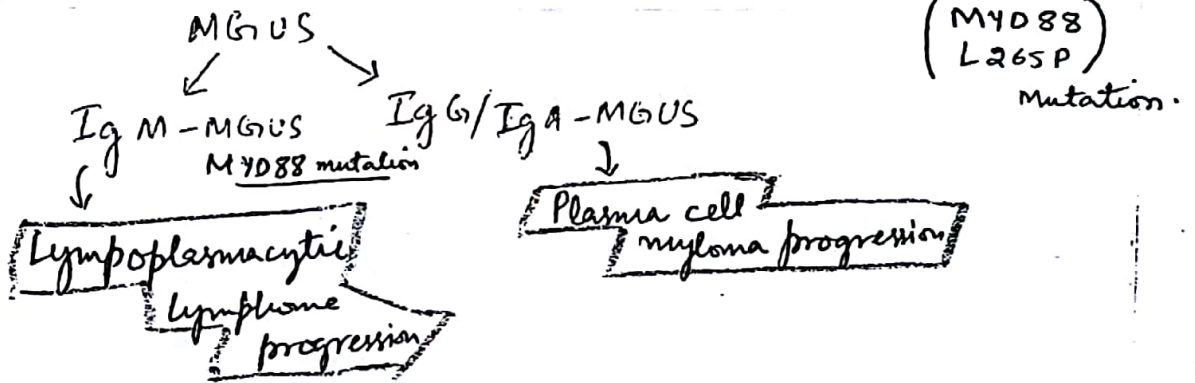 MGUS
(MYD88
L265P)
Mutation.
IgM-MGUS
IgG/IgA-MGUS
MYD88 mutation
Lympoplasmacytic
lymphome
progression
Plasma cell
myloma progression